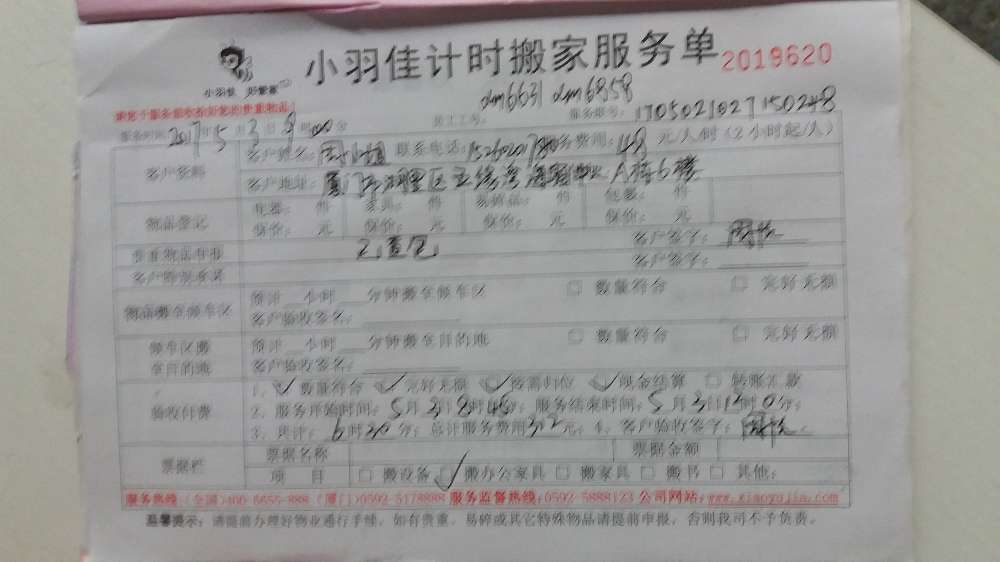 小羽佳计时搬家服务单 2019620
小羽佳 好管家
xm6631 xm6858
员工工号: 服务账号: 170502102715024B
服务时间: 2017年5月3日9时00分
客户资料 客户姓名: 周小姐 联系电话: 服务费用: 118 元/人/时(2小时起/人)
客户地址: 厦门市湖里区 A栋6楼
物品登记 电器: 件 家具: 件 易碎品: 件 仪器: 件
保价: 元 保价: 元 保价: 元 保价: 元
贵重物品申报 已查包 客户签字:
客户特别要求 客户签字:
物品搬至停车区 预计 小时 分钟搬至停车区 □ 数量符合 □ 完好无损
客户验收签名:
停车区搬至目的地 预计 小时 分钟搬至目的地 □ 数量符合 □ 完好无损
客户验收签名:
验收付费 1、☑ 数量符合 ☑ 完好无损 ☑ 按需归位 ☑ 现金结算 □ 转账汇款
2、服务开始时间: 5月3日8时40分; 服务结束时间: 5月3日15时0分;
3、共计: 6时20分; 总计服务费用312元; 4、客户验收签字:
票据栏 票据名称 票据金额
项目 □ 搬设备 ☑ 搬办公家具 □ 搬家具 □ 搬书 □ 其他:
服务热线:(全国)400-6655-888 (厦门)0592-5178888 服务监督热线:0592-5888123 公司网站:www.xiaoyujia.com
温馨提示: 请提前办理好物业通行手续, 如有贵重、易碎或其它特殊物品请提前申报, 否则我司不予负责。